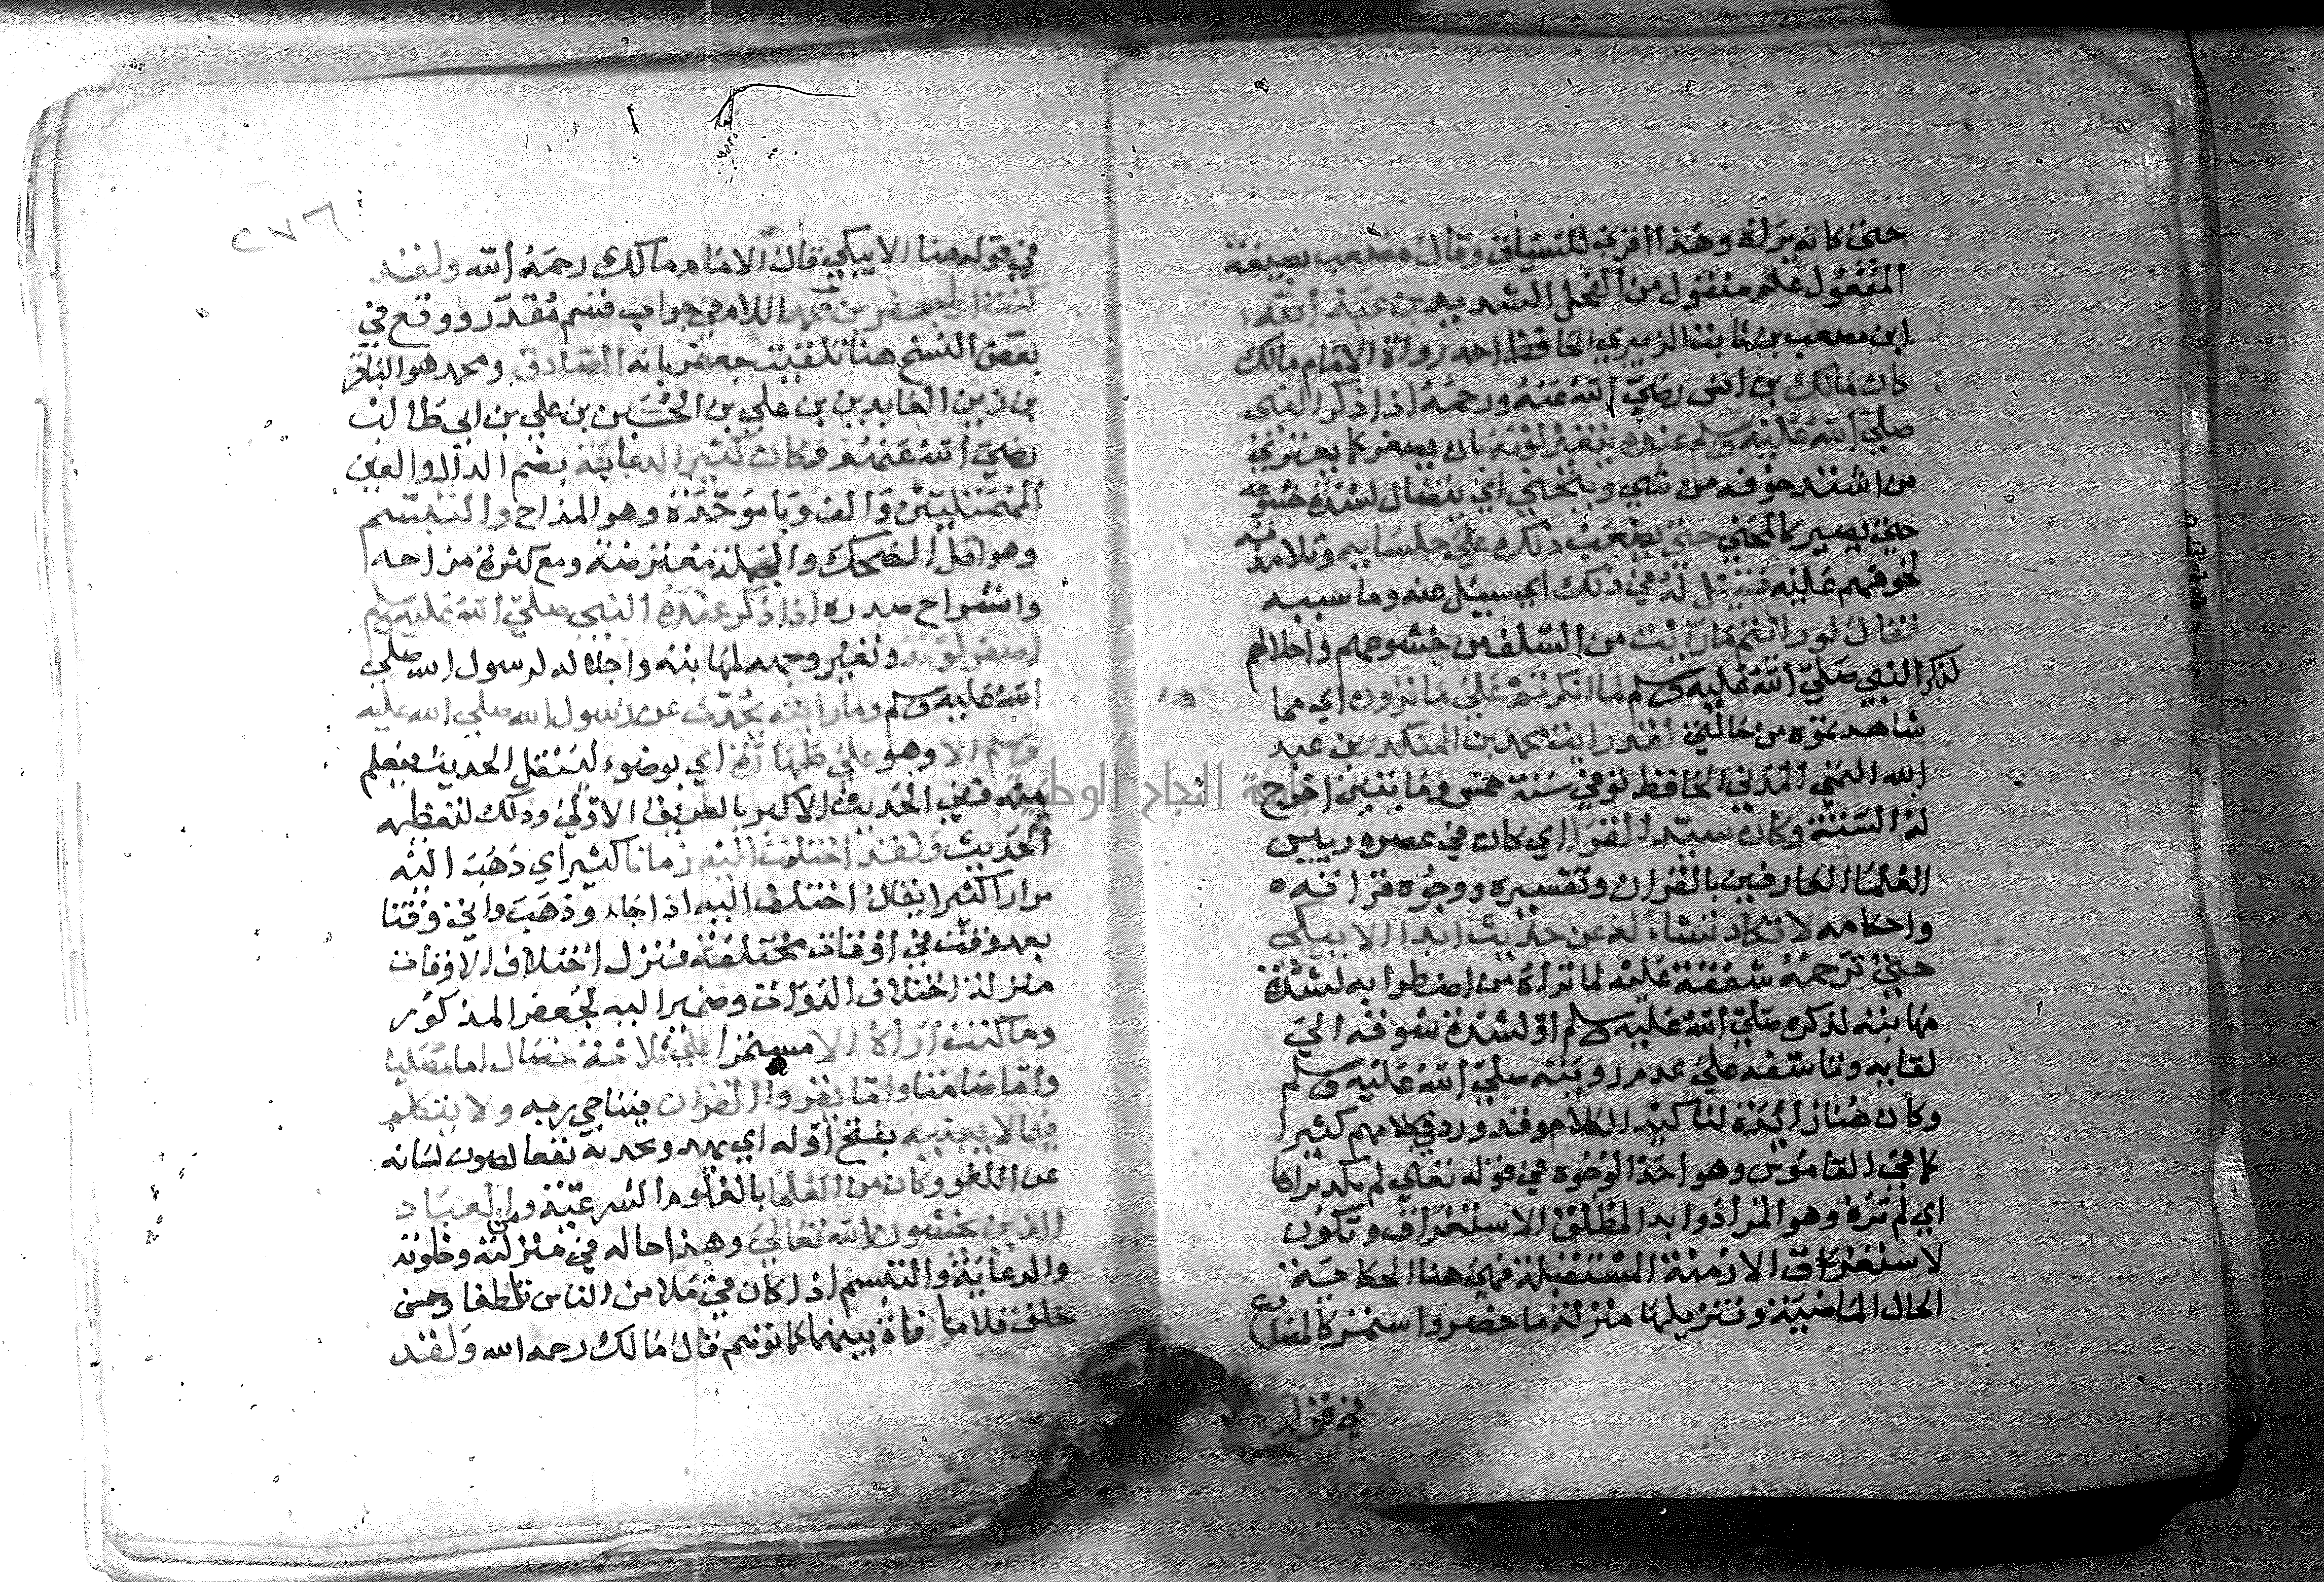 حتى كانه يزله وهذا اقرب للسياق وقال مصعب بصيغة
المفعول علم منقول من الفحل الشديد بن عبد الله
ابن مصعب بن ثابت الزبيري الحافظ احد رواة الامام مالك
كان مالك بن انس رضي الله عنه ورحمه اذا ذكر النبي
صلى الله عليه وسلم عنده يتغير لونه بان يصفر كما يعتري
من اشتد خوفه من شي وينحني اي ينفتال لشدة خشوعه
حتى يصير كالمنحني حتى يصعب ذلك على جلسايه وتلامذته
لخوفهم عليه فقيل له في ذلك اي سيل عنه وما سببه
فقال لو رايتم ما رايت من السلف من خشوعهم واجلالهم
لذكر النبي صلى الله عليه وسلم لما انكرتم علي ما ترون اي مما
شاهدتموه من حالتي لقد رايت محمد بن المنكدر بن عبد
الله التيمي المدني الحافظ توفي سنة خمس ومايتين اخرج
له الستة وكان سيد القرا اي كان في عصره رييس
العلما العارفين بالقران وتفسيره ووجوه قراته
واحكامه لا نكاد نسأله عن حديث ابدا الا يبكي
حتى نرحمه شفقة عليه لما نراه من اضطرابه لشدة
مهابته لذكره صلى الله عليه وسلم او لشدة شوقه الى
لقايه وتاسفه على عدم رويته صلى الله عليه وسلم
وكان هنا زائدة لتاكيد الكلام وقد ورد في كلامهم كثيرا
كما في القاموس وهو احد الوجوه في قوله تعالى لم يكد يراها
اي لم يره وهو المراد وابدا لمطلق الاستغراق وتكون
لاستغراق الازمنة المستقبلة فهي هنا لحكاية
الحال الماضية وتنزيلها منزلة ما حضر واستمر كالمضارع
في قوله
٢٧٦
في قوله هنا الا يبكي قال الامام مالك رحمه الله ولقد
كنت ارا جعفر بن محمد اللام في جواب قسم مقدر ووقع في
بعض النسخ هنا تلقيب جعفر بانه الصادق ومحمد هو الباقر
بن زين العابدين بن علي بن الحسين بن علي بن ابي طالب
رضي الله عنهم وكان كثير الدعابة بضم الدال والعين
المهملتين والف وبا موحدة وهو المزاح والتبسم
وهو اقل الضحك والجملة معترضة ومع كثرة مزاحه
وانشراح صدره اذا ذكر عنده النبي صلى الله عليه وسلم
اصفر لونه وتغير وجهه لمهابته واجلاله لرسول الله صلى
الله عليه وسلم وما رايته يحدث عن رسول الله صلى الله عليه
وسلم الا وهو على طهارة اي بوضوء لينقل الحديث فيعلم
منه في الحديث الاكبر بالطريق الاولى وذلك لتعظيمه
الحديث ولقد اختلفت اليه زمانا كثيرا اي ذهبت اليه
مرارا كثيرا يقال اختلف اليه اذا جاء وذهب واتى وقتا
بعد وقت في اوقات مختلفة فنزل اختلاف الاوقات
منزلة اختلاف الذوات وضمير اليه لجعفر المذكور
وما كنت اراه الا مستمرا على ثلاثة خصال اما مصليا
واما صامتا واما يقروا القران فيناجي ربه ولا يتكلم
فيما لا يعنيه بفتح اوله اي يهمه ويجديه نفعا لصون لسانه
عن اللغو وكان من العلما بالعلوم الشرعية ومن العباد
الذين يخشون الله تعالى وهذا حاله في منزلته وخلوته
والدعابة والتبسم اذا كان في ملا من الناس تلطفا وحسن
خلق فلا منافاة بينهما كما توهم قال مالك رحمه الله ولقد